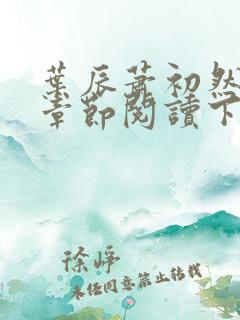 葉辰蕭初然
章節閱讀下
徐崢
未經同意禁止轉載